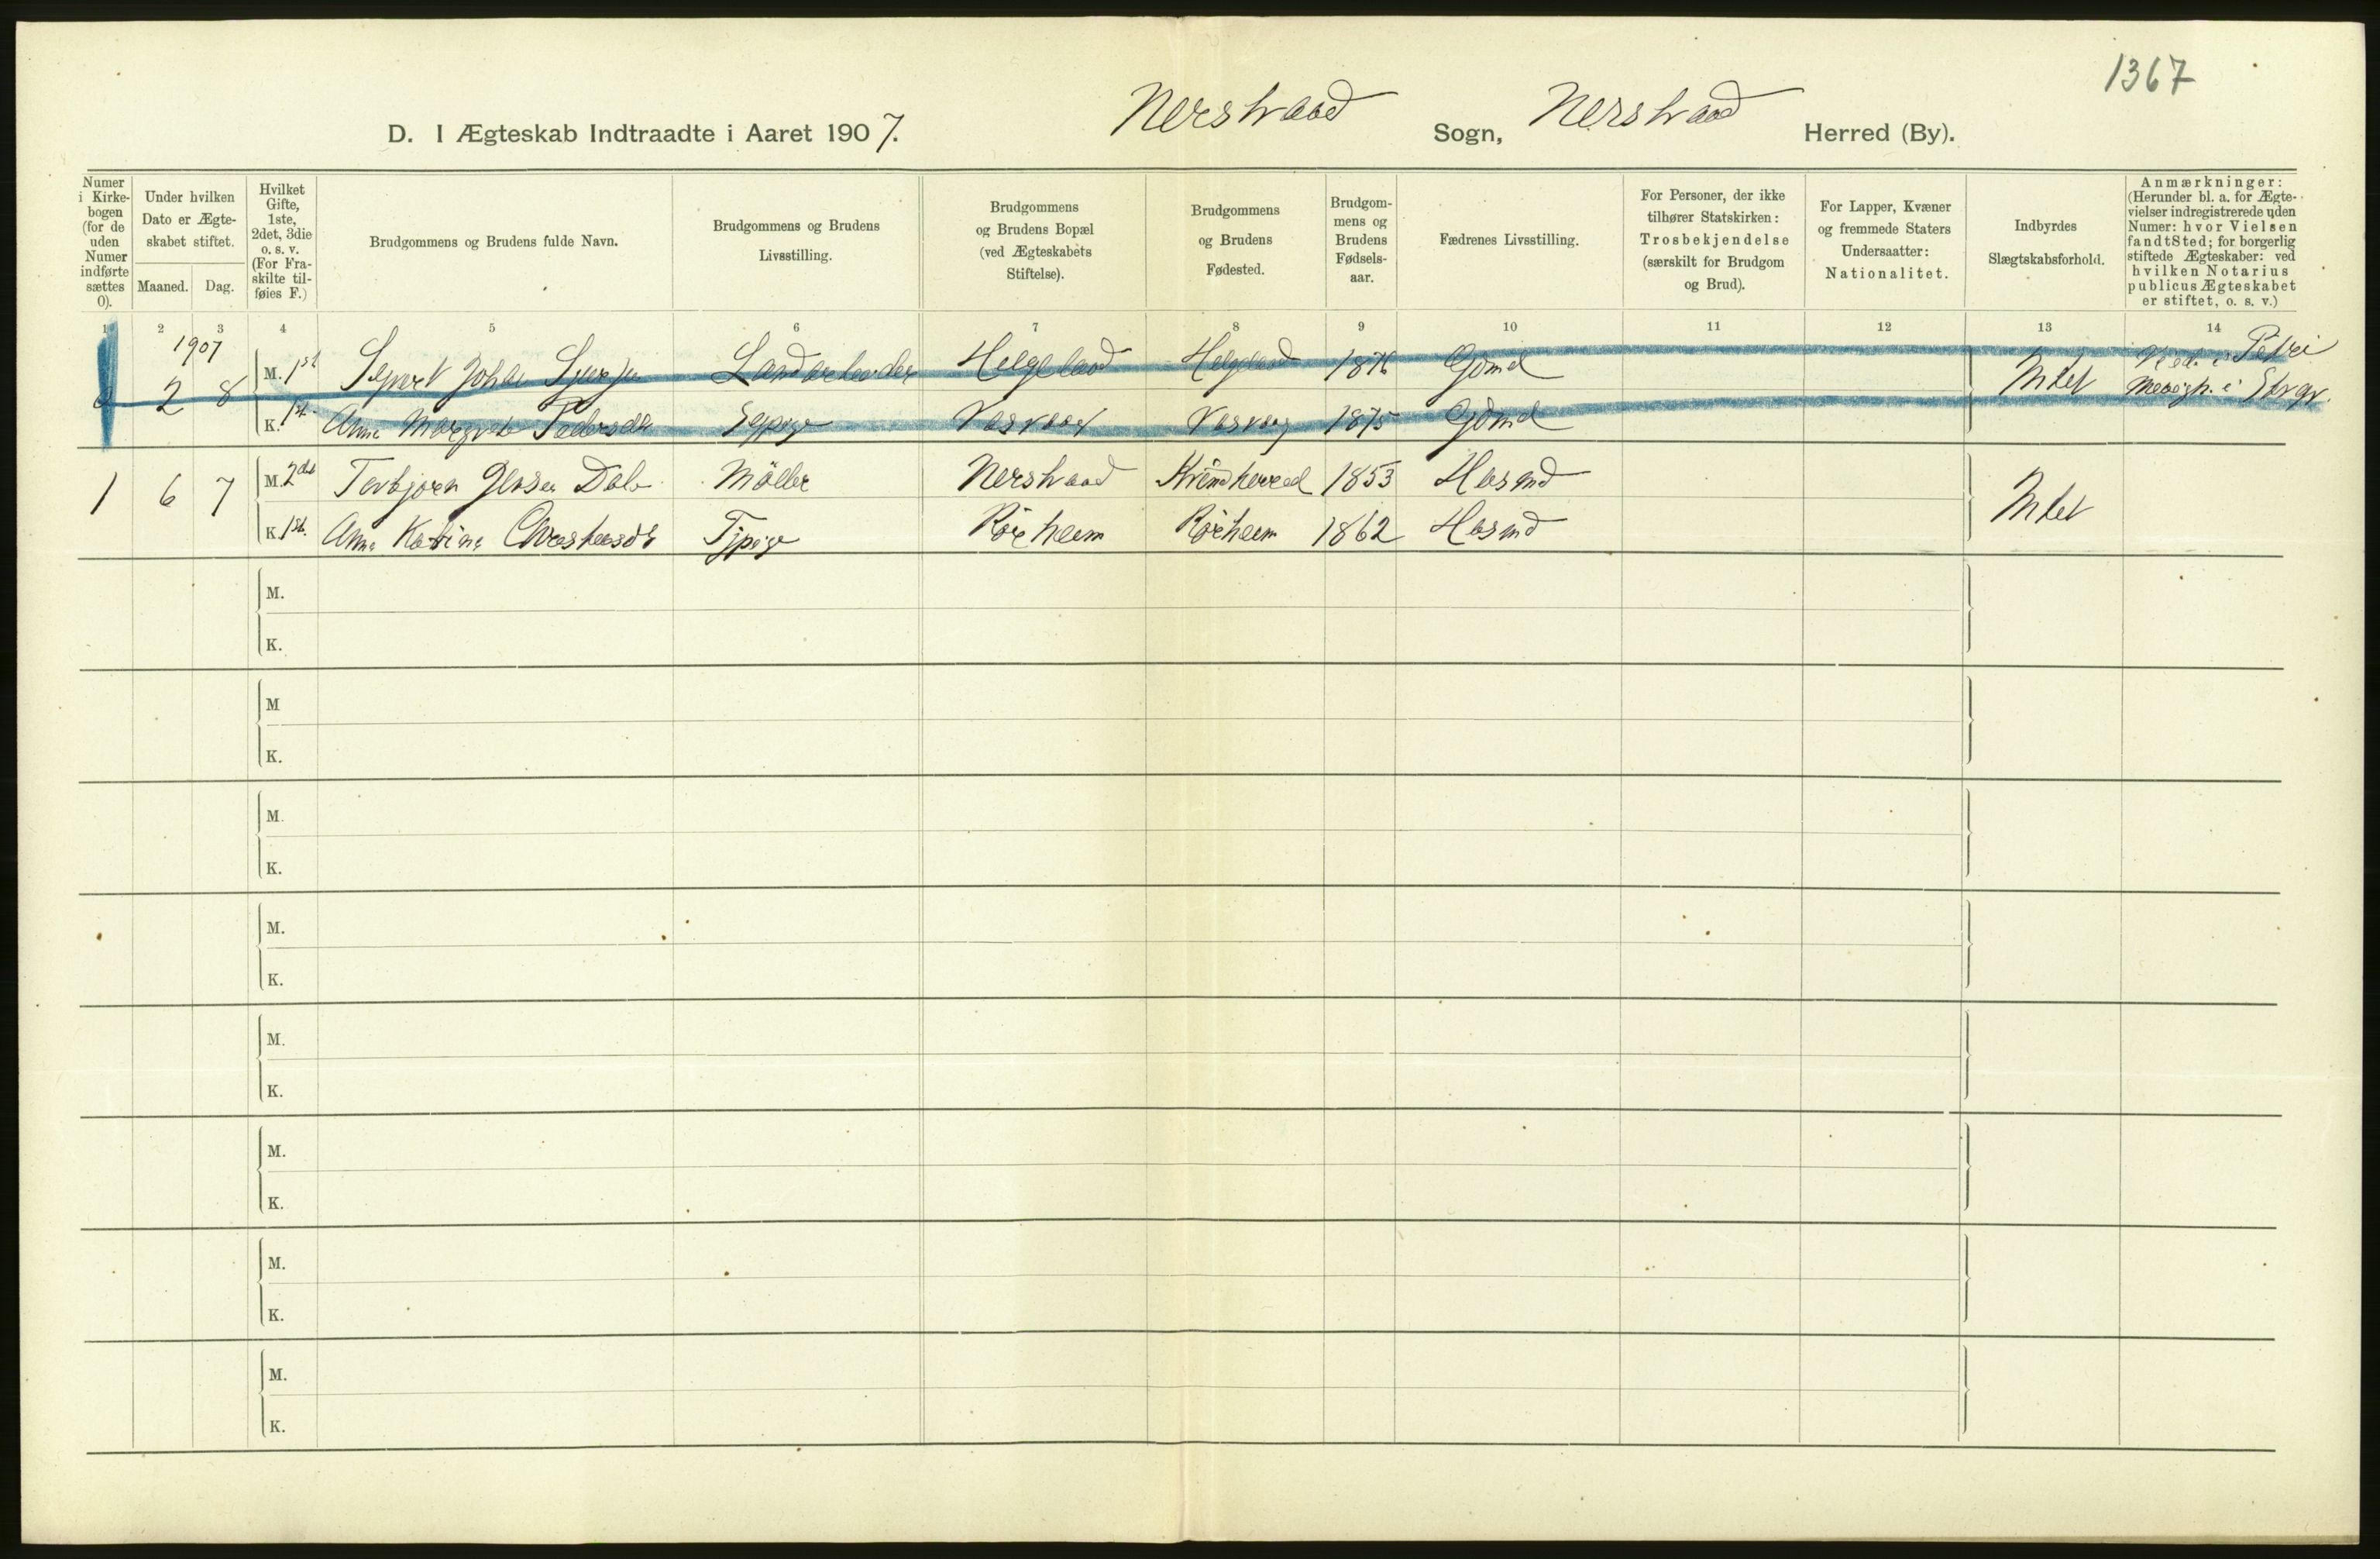 1367
D. I Ægteskab Indtraadte i Aaret 1907. Nerstrand Sogn, Nerstrand Herred (By).
Numer i Kirkebogen (for de uden Numer indførte sættes 0).
Under hvilken Dato er Ægteskabet stiftet.
Maaned. Dag.
Hvilket Gifte, 1ste, 2det, 3die o. s. v. (For Fraskilte tilføies F.)
Brudgommens og Brudens fulde Navn.
Brudgommens og Brudens Livsstilling.
Brudgommens og Brudens Bopæl (ved Ægteskabets Stiftelse).
Brudgommens og Brudens Fødested.
Brudgommens og Brudens Fødselsaar.
Fædrenes Livsstilling.
For Personer, der ikke tilhører Statskirken: Trosbekjendelse (særskilt for Brudgom og Brud).
For Lapper, Kvæner og fremmede Staters Undersaatter: Nationalitet.
Indbyrdes Slægtskabsforhold.
Anmærkninger: (Herunder bl. a. for Ægtevielser indregistrerede uden Numer: hvor Vielsen fandt Sted; for borgerlig stiftede Ægteskaber: ved hvilken Notarius publicus Ægteskabet er stiftet, o. s. v.)
1 2 3 4 5 6 7 8 9 10 11 12 13 14
1907
2 8 M. 1st Johan Landarbeider Helgeland Helgeland 1876 Gdmd Intet Petri
K. 1st. Anna Margrete Pedersdtr Tjpige 1875 Gdmd
1 6 7 M. 2det Torbjørn Dale Møller Nerstrand Kvindherred 1853 Husmd Intet
K. 1st. Anna Katrine Tjpige 1862 Husmd
M.
K.
M
K.
M.
K.
M.
K.
M.
K.
M.
K.
M.
K.
M.
K.